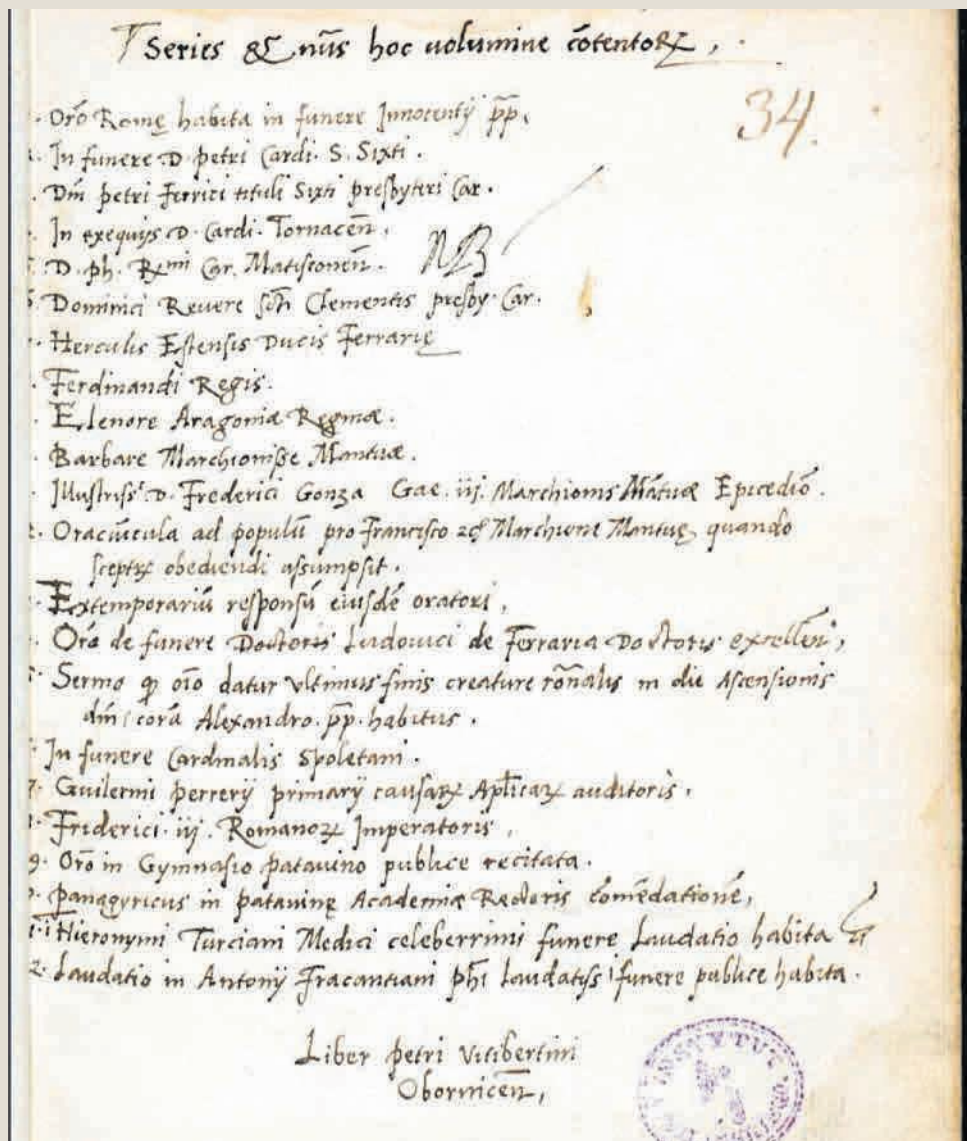 Series & nūs hoc uolumine cōtentoꝝ,
34.
Orō Romę habita in funere Innocentij p̄p.
In funere D. petri Cardi. S. Sixti.
Dm̄ petri Ferrici tituli Sixti presbyteri Car.
In exequijs D. Cardi. Tornaceñ,
D. ph. Rmi Car. Matisconeñ.
Dominici Reuere Sctī Clementis presby. Car.
Herculis Estensis Ducis Ferrarię
Ferdinandi Regis.
Elenore Aragoniæ Reginæ.
Barbare Marchionisse Mantuæ.
Illustriss. D. Frederici Gonza Gae. iij. Marchionis Mātuæ Epicediō.
Oraciūcula ad populū pro Francisco Marchione Mantuę, quando
sceptꝝ obediendi assumpsit.
Extemporariū responsū eiusdē oratori,
Orō de funere Doctoris Ludouici de Ferraria Doctoris excelleñ,
Sermo qͥ oīo datur vltimus finis creature rōnalis in die Ascensionis
dm̄i corā Alexandro. p̄p. habitus.
In funere Cardinalis Spoletani.
7. Guilermi perrerij primarij causaꝝ Aplicaꝝ auditoris.
Friderici. iij. Romanoꝝ Imperatoris,
9. Orō in Gymnasio patauino publice recitata.
Panagyricus in patauinę Academiæ Rectoris cōmēdationē,
Hieronymi Turciani Medici celeberrimi funere Laudatio habita
2. Laudatio in Antonij Fracantiani phi laudatiss. funere publice habita.
Liber petri Vitibertini
Oborniceñ,